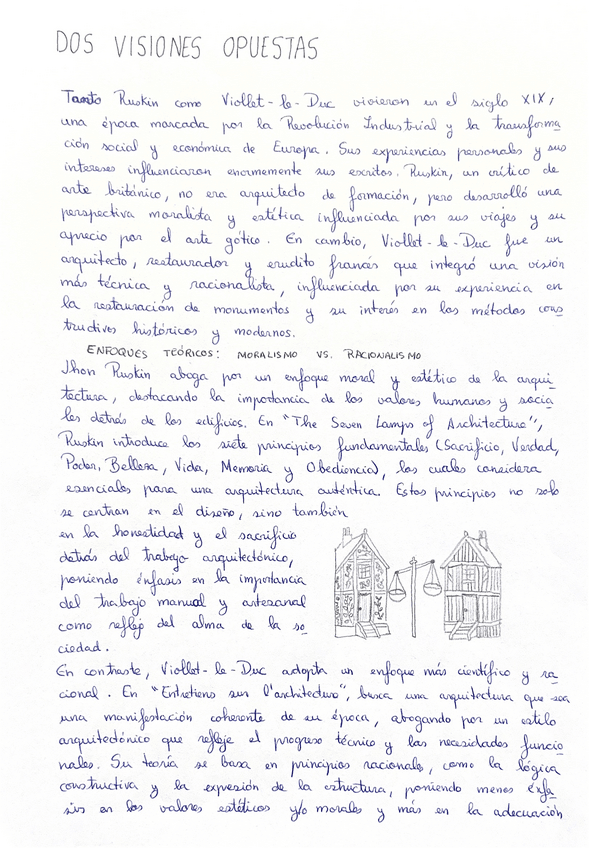 DOS VISIONES OPUESTAS
Tanto Ruskin como Viollet-le-Duc vivieron en el siglo XIX,
una época marcada por la Revolución Industrial y la transforma
ción social y económica de Europa. Sus experiencias personales y sus
intereses influenciaron enormemente sus escritos. Ruskin, un crítico de
arte británico, no era arquitecto de formación, pero desarrolló una
perspectiva moralista y estética influenciada por sus viajes y su
aprecio por el arte gótico. En cambio, Viollet-le-Duc fue un
arquitecto, restaurador y erudito francés que integró una visión
más técnica y racionalista, influenciada por su experiencia en
la restauración de monumentos y su interés en los métodos cons
tructivos históricos y modernos.
ENFOQUES TEÓRICOS: MORALISMO VS. RACIONALISMO
Jhon Ruskin aboga por un enfoque moral y estético de la arqui
tectura, destacando la importancia de los valores humanos y socia
les detrás de los edificios. En "The Seven Lamps of Architecture",
Ruskin introduce los siete principios fundamentales (Sacrificio, Verdad,
Poder, Belleza, Vida, Memoria y Obediencia), los cuales considera
esenciales para una arquitectura auténtica. Estos principios no solo
se centran en el diseño, sino también
en la honestidad y el sacrificio
detrás del trabajo arquitectónico,
poniendo énfasis en la importancia
del trabajo manual y artesanal
como reflejo del alma de la so
ciedad.
En contraste, Viollet-le-Duc adopta un enfoque más científico y ra
cional. En "Entretiens sur l'architecture", busca una arquitectura que sea
una manifestación coherente de su época, abogando por un estilo
arquitectónico que refleje el progreso técnico y las necesidades funcio
nales. Su teoría se basa en principios racionales, como la lógica
constructiva y la expresión de la estructura, poniendo menos énfa
sis en los valores estéticos y/o morales y más en la adecuación